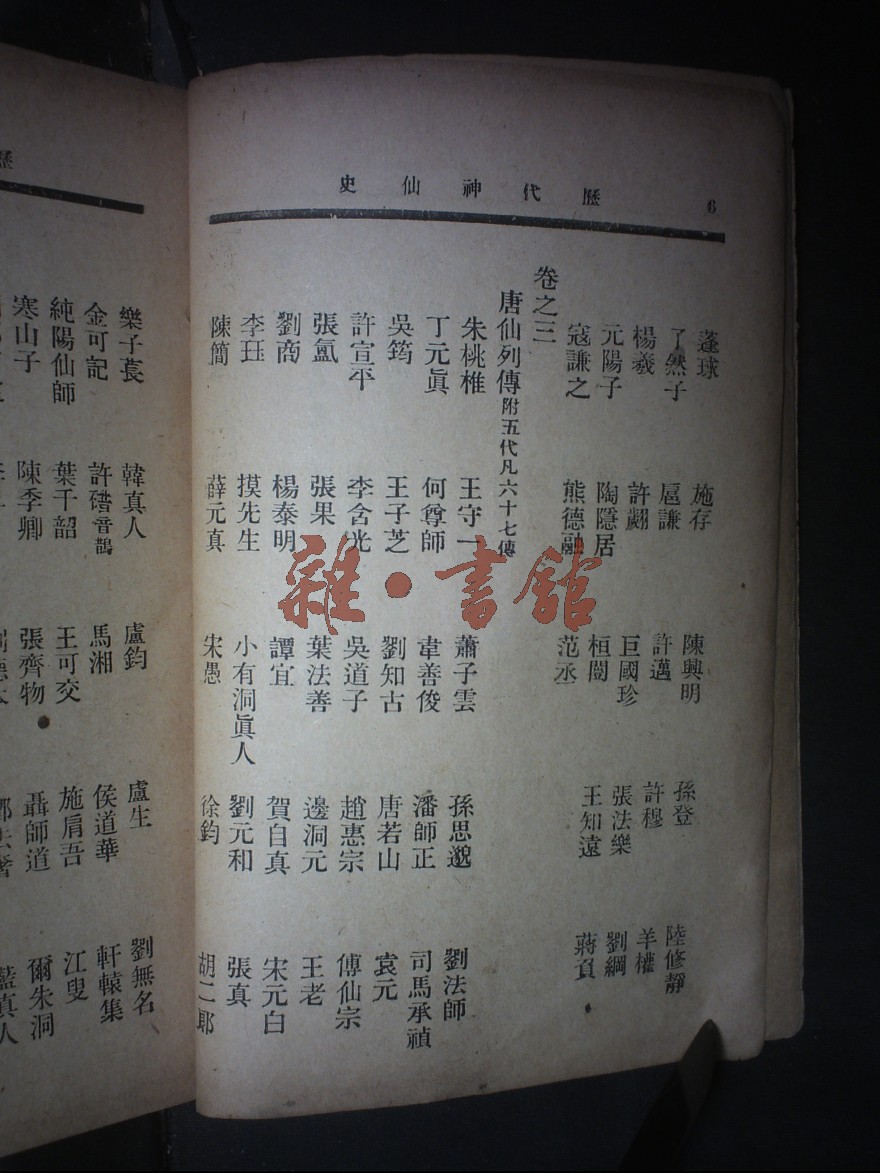 歷代神仙史
6
蓬球 施存 陳興明 孫登 陸修靜
了然子 扈謙 許邁 許穆 羊權
楊羲 許翽 巨國珍 張法樂 劉綱
元陽子 陶隱居 桓闓 王知遠 蔣負
寇謙之 熊德融 范丞
卷之三
唐仙列傳附五代凡六十七傳
朱桃椎 王守一 蕭子雲 孫思邈 劉法師
丁元眞 何尊師 韋善俊 潘師正 司馬承禎
吳筠 王子芝 劉知古 唐若山 袁元
許宣平 李含光 吳道子 趙惠宗 傅仙宗
張氳 張果 葉法善 邊洞元 王老
劉商 楊泰明 譚宜 賀自真 宋元白
李珏 摸先生 小有洞眞人 劉元和 張真
陳簡 薛元真 宋愚 徐鈞 胡二郎
歷
樂子萇 韓真人 盧鈞 盧生 劉無名
金可記 許碏音鵲 馬湘 侯道華 軒轅集
純陽仙師 葉千韶 王可交 施肩吾 江叟
寒山子 陳季卿 張齊物 聶師道 爾朱洞
藍真人
雜·書館